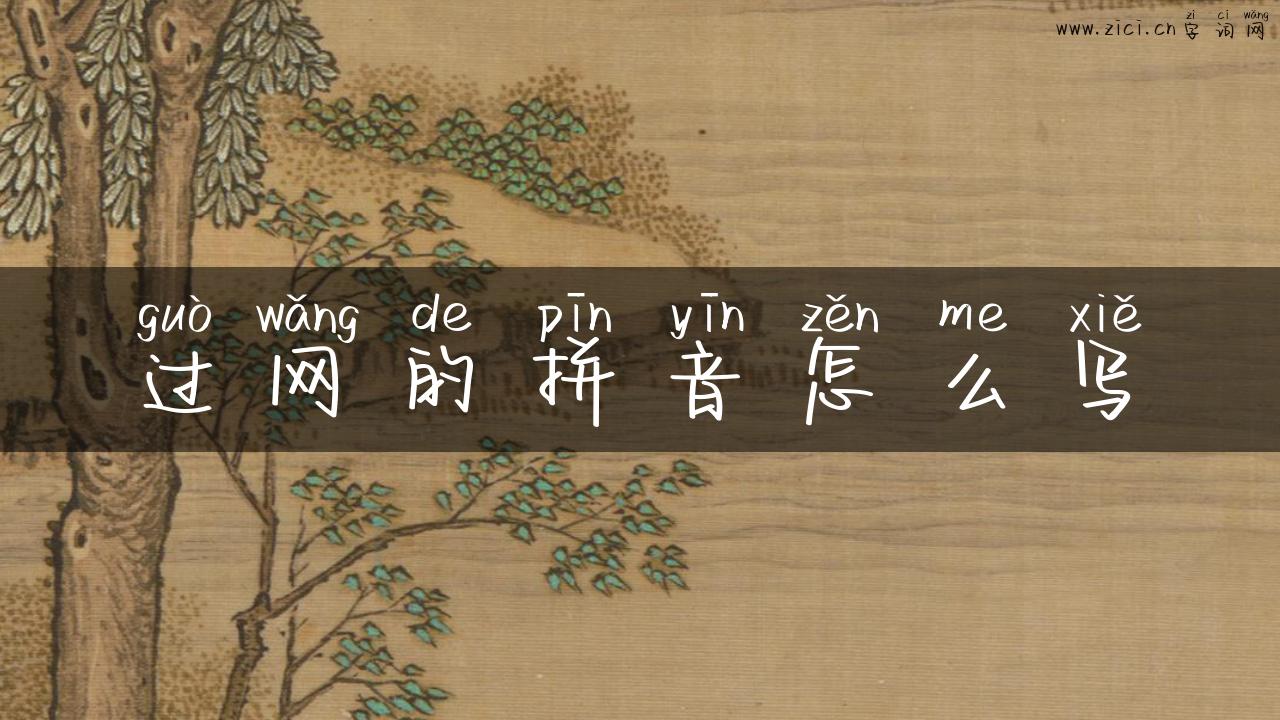 zì cí wǎng
www.zici.cn 字词网
guò wǎng de pīn yīn zěn me xiě
过网的拼音怎么写